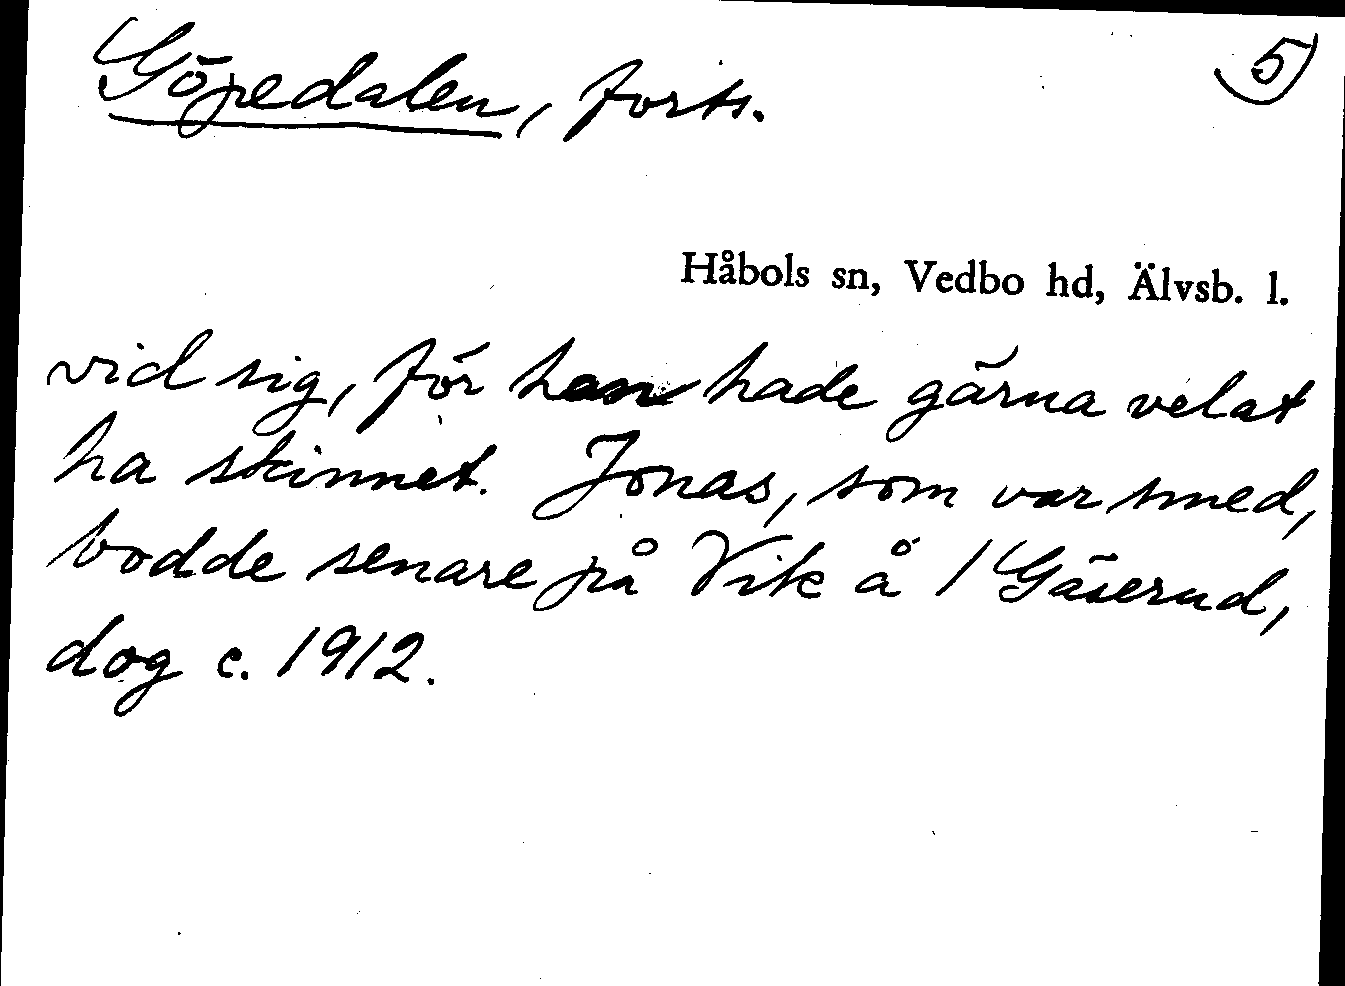 Göpedalen, forts.
5
Håbols sn, Vedbo hd, Älvsb. l.
vid sig, för han hade gärna velat
ha skinnet. Jonas, som var smed,
bodde senare på Vik å 1 Gäserud,
dog c. 1912.